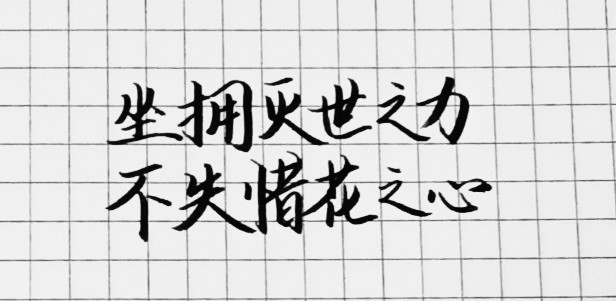 坐拥灭世之力
不失惜花之心